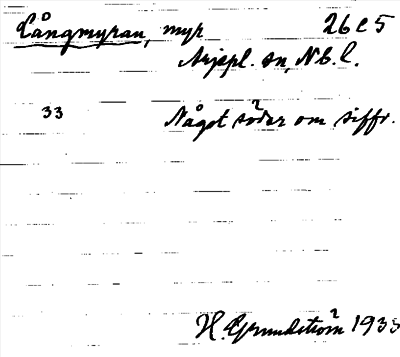 Långmyran, myr 26 C 5
Arjepl. sn, Nb. l.
33 Något söder om siffr.
H. Grundström 1935